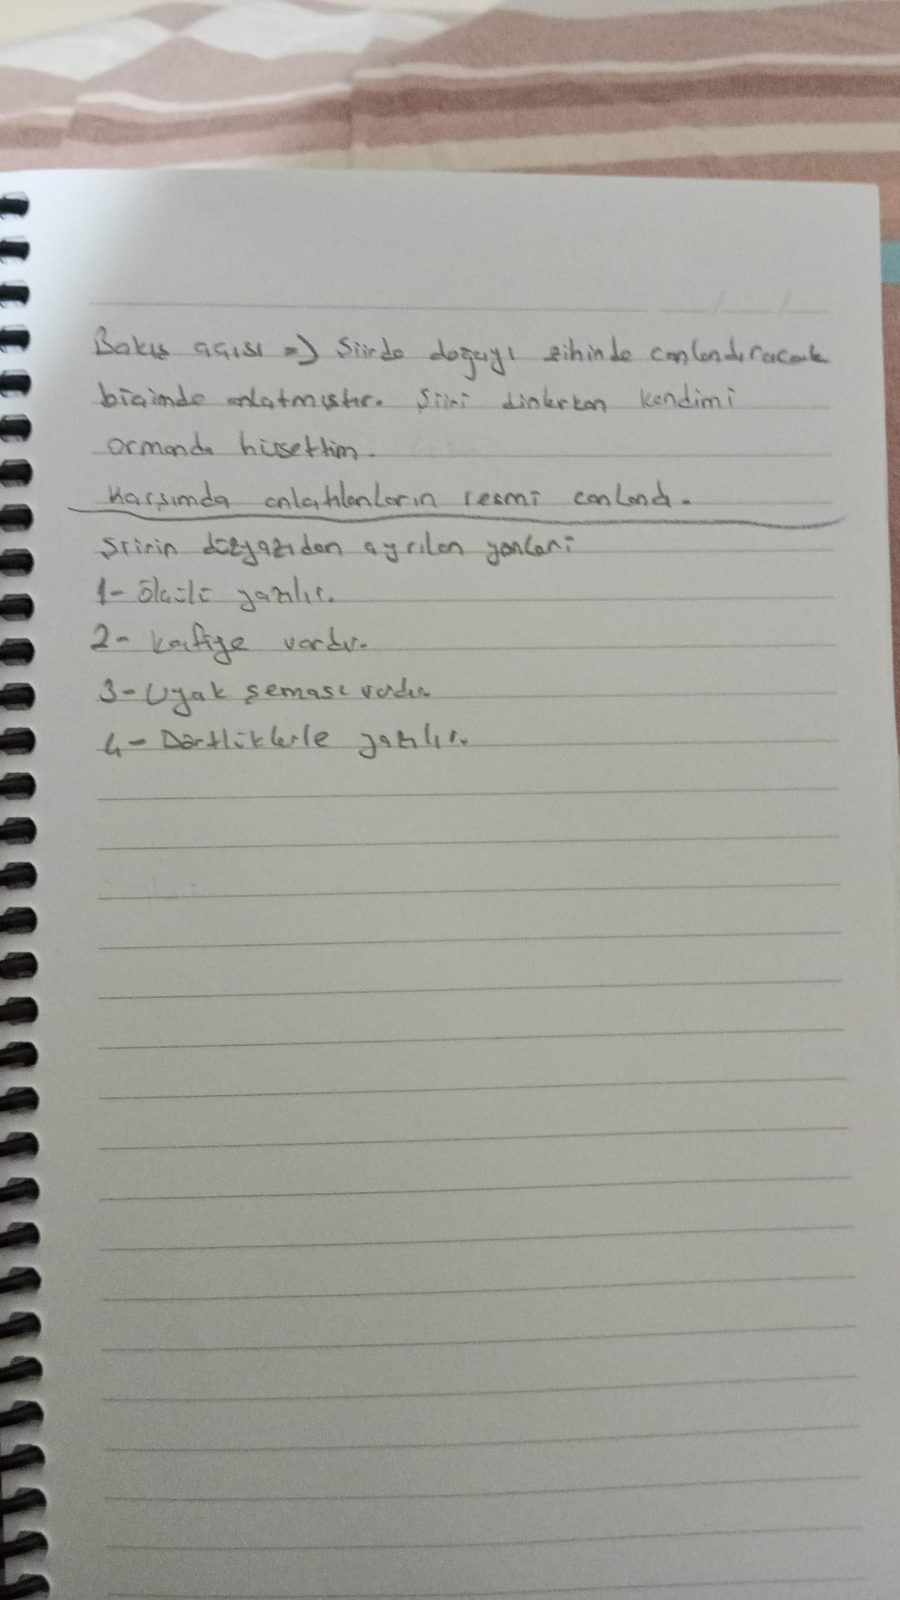 Bakış açısı => Şiirde doğayı zihinde canlandıracak
biçimde anlatmıştır. Şiiri dinlerken kendimi
ormanda hissettim.
Karşımda anlatılanların resmi canlandı.
Şiirin düzyazıdan ayrılan yönleri
1- Ölçülü yazılır.
2- kafiye vardır.
3- Uyak şeması vardır
4- Dörtlüklerle yazılır.